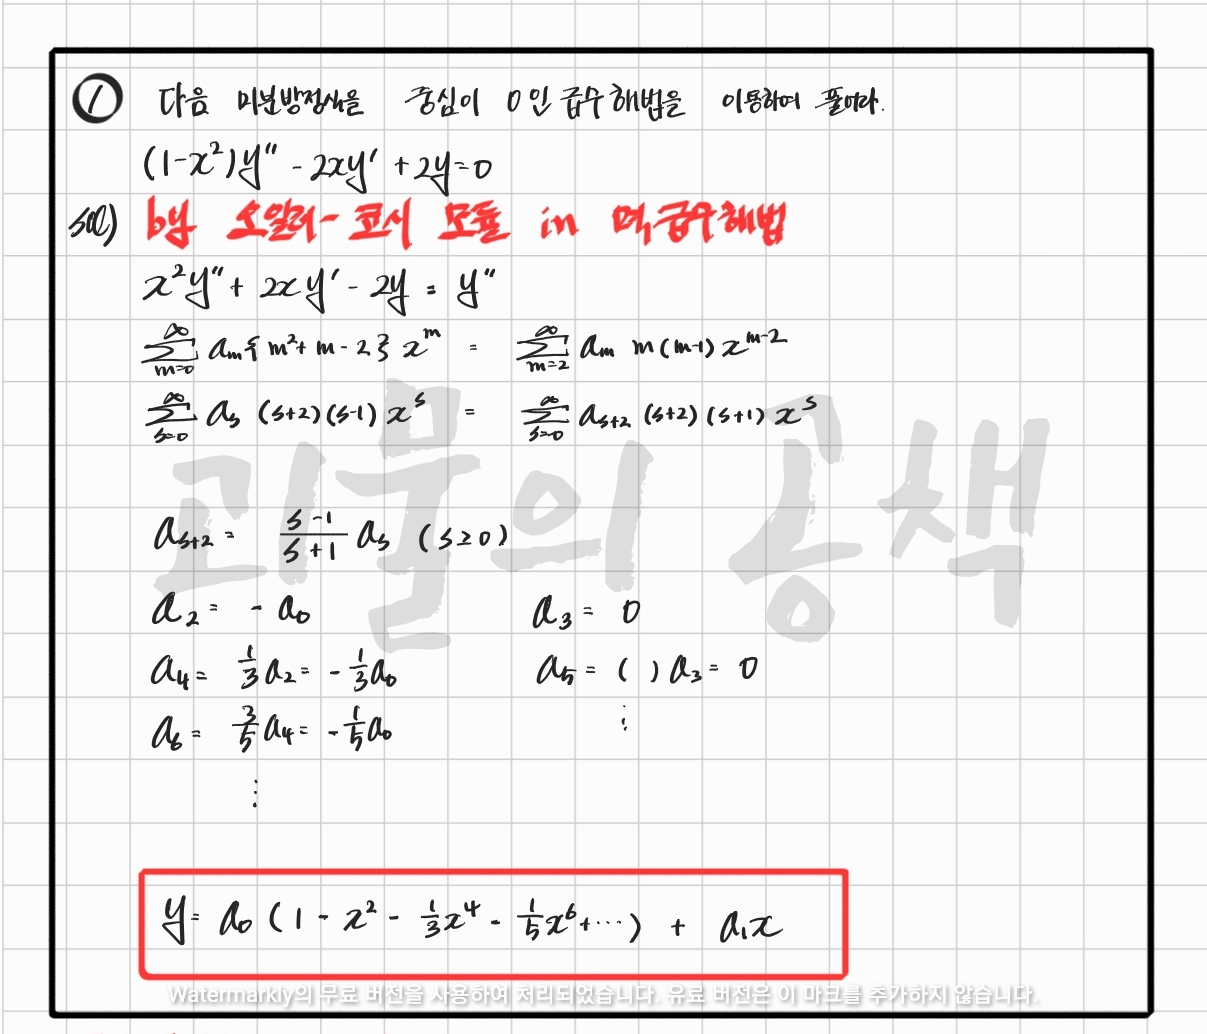 ① 다음 미분방정식을 중심이 0인 급수해법을 이용하여 풀어라.
(1-x²)y'' - 2xy' + 2y = 0
sol) by 오일러-코시 모듈 in 멱급수해법
x²y'' + 2xy' - 2y = y''
∑_{m=0}^{∞} a_m{m²+m-2}x^m = ∑_{m=2}^{∞} a_m m(m-1)x^{m-2}
∑_{s=0}^{∞} a_s (s+2)(s-1)x^s = ∑_{s=0}^{∞} a_{s+2} (s+2)(s+1)x^s
괴물의 공책
a_{s+2} = \frac{s-1}{s+1} a_s (s≥0)
a₂ = -a₀ a₃ = 0
a₄ = \frac{1}{3}a₂ = -\frac{1}{3}a₀ a₅ = ( )a₃ = 0
a₆ = \frac{3}{5}a₄ = -\frac{1}{5}a₀ ⋮
⋮
y = a₀(1 - x² - \frac{1}{3}x⁴ - \frac{1}{5}x⁶ + ⋯) + a₁x
Watermarkly의 무료 버전을 사용하여 처리되었습니다. 유료 버전은 이 마크를 추가하지 않습니다.